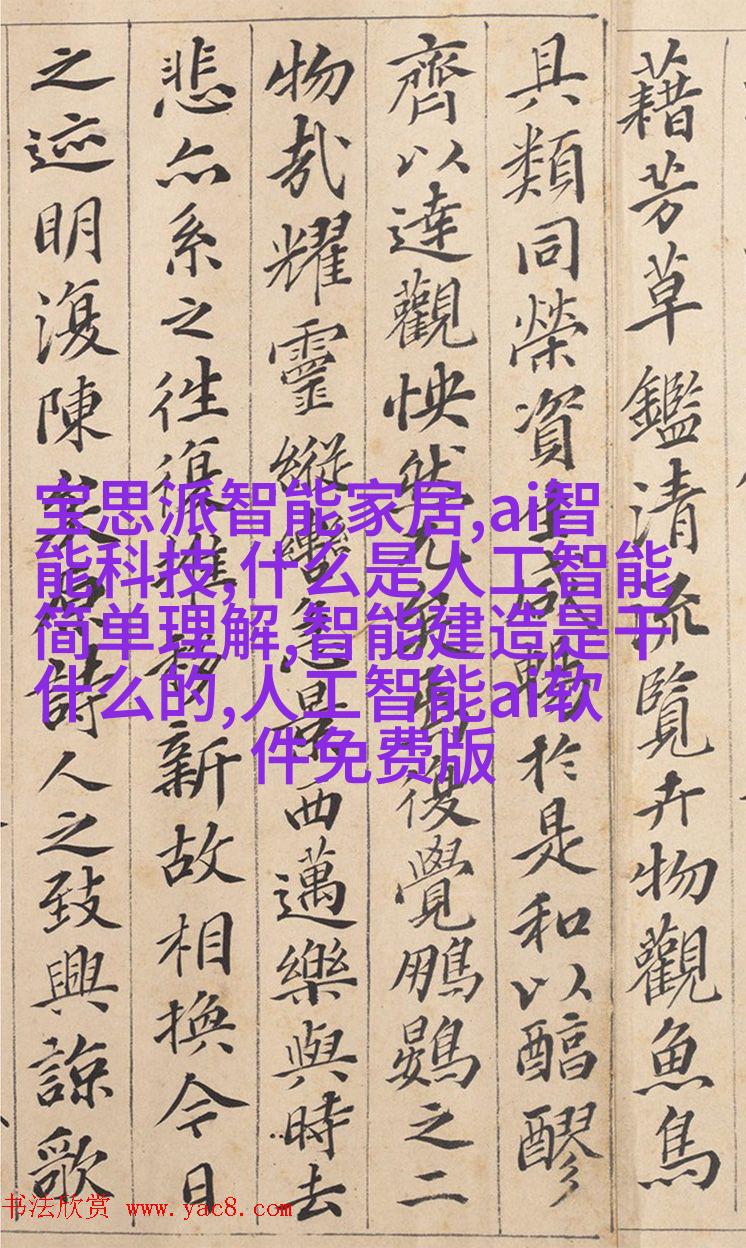 藉芳草鑑清流覽卉物觀魚鳥
具類同榮資生咸暢於是和以醇醪
齊以達觀怏然兀矣焉復覺鵬鷃之二
物哉耀靈縱轡急景西邁樂與時去
悲亦系之往復推移新故相換今日
之迹明復陳矣原詩人之致興諒歌
宝思派智能家居,ai智
能科技,什么是人工智能
简单理解,智能建造是干
什么的,人工智能ai软
件免费版
书法欣赏 www.yac8.com